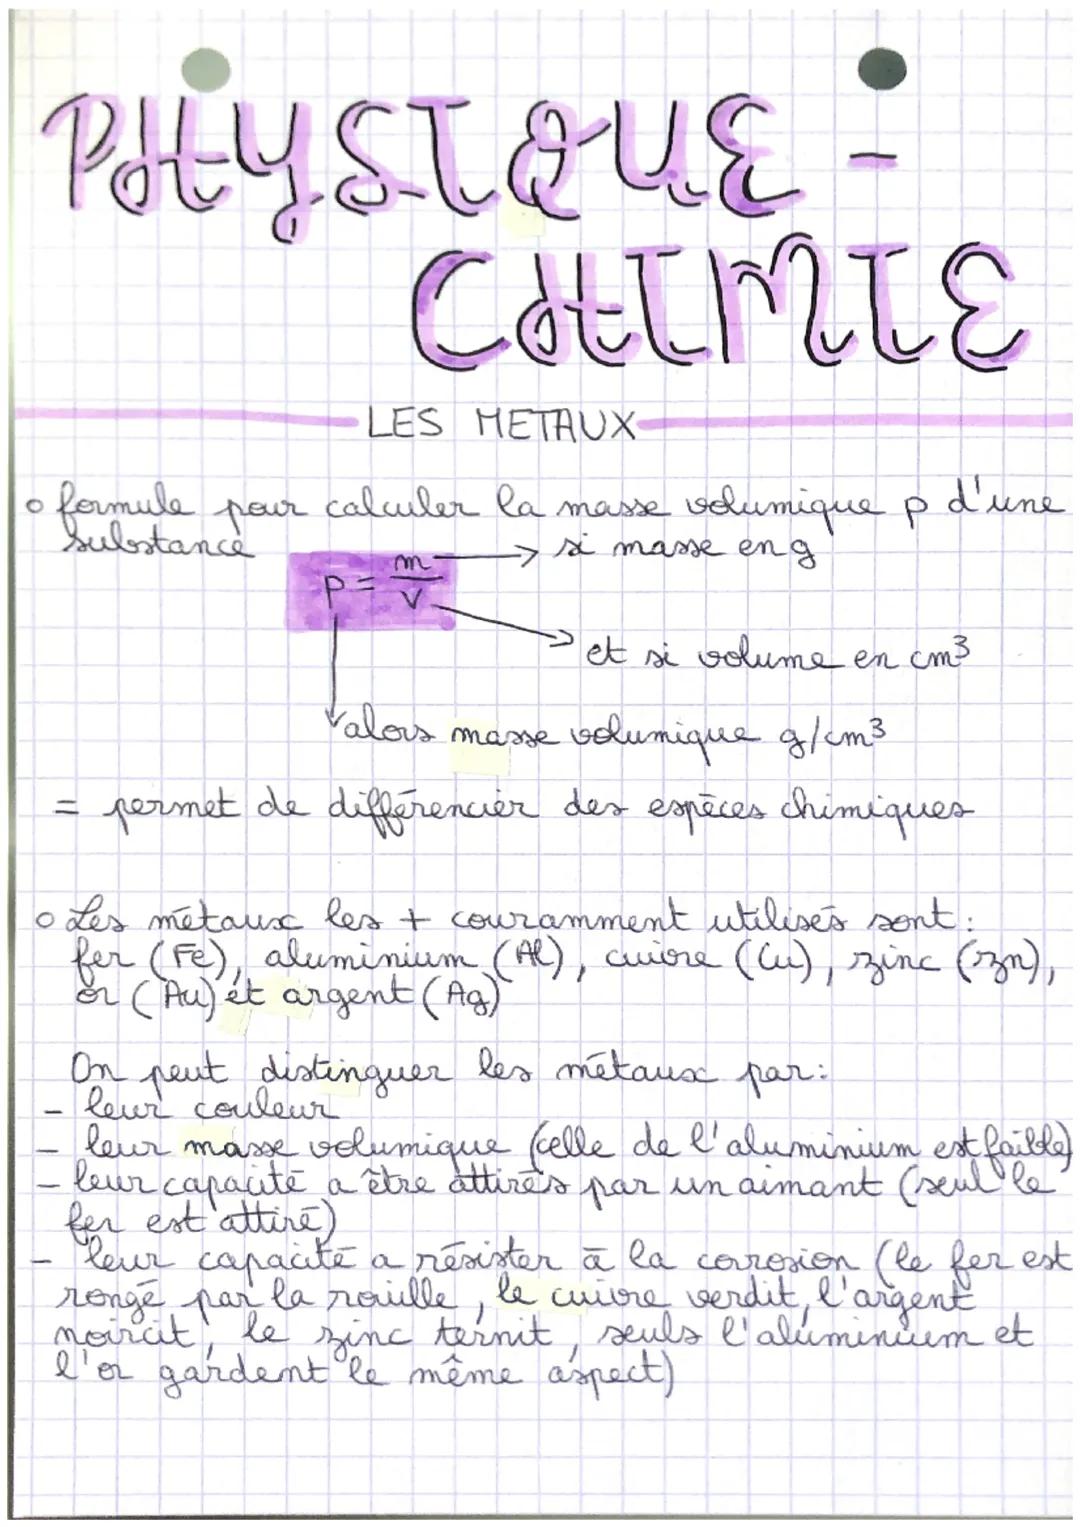 PHYSIQUE -
CHIMIE
LES METAUX
o formule pour calculer la masse volumique p d'une
substance
p = m/v
→ si masse en g
→ et si volume en cm³
alors masse volumique g/cm³
= permet de différencier des espèces chimiques
o Les métaux les + couramment utilisés sont :
fer (Fe), aluminium (Al), cuivre (Cu), zinc (zn),
or (Au) et argent (Ag)
On peut distinguer les métaux par :
- leur couleur
- leur masse volumique (celle de l'aluminium est faible)
- leur capacité a être attirés par un aimant (seul le
fer est attiré)
- leur capacité a résister à la corrosion (le fer est
rongé par la rouille, le cuivre verdit, l'argent
noircit, le zinc ternit, seuls l'aluminium et
l'or gardent le même aspect)